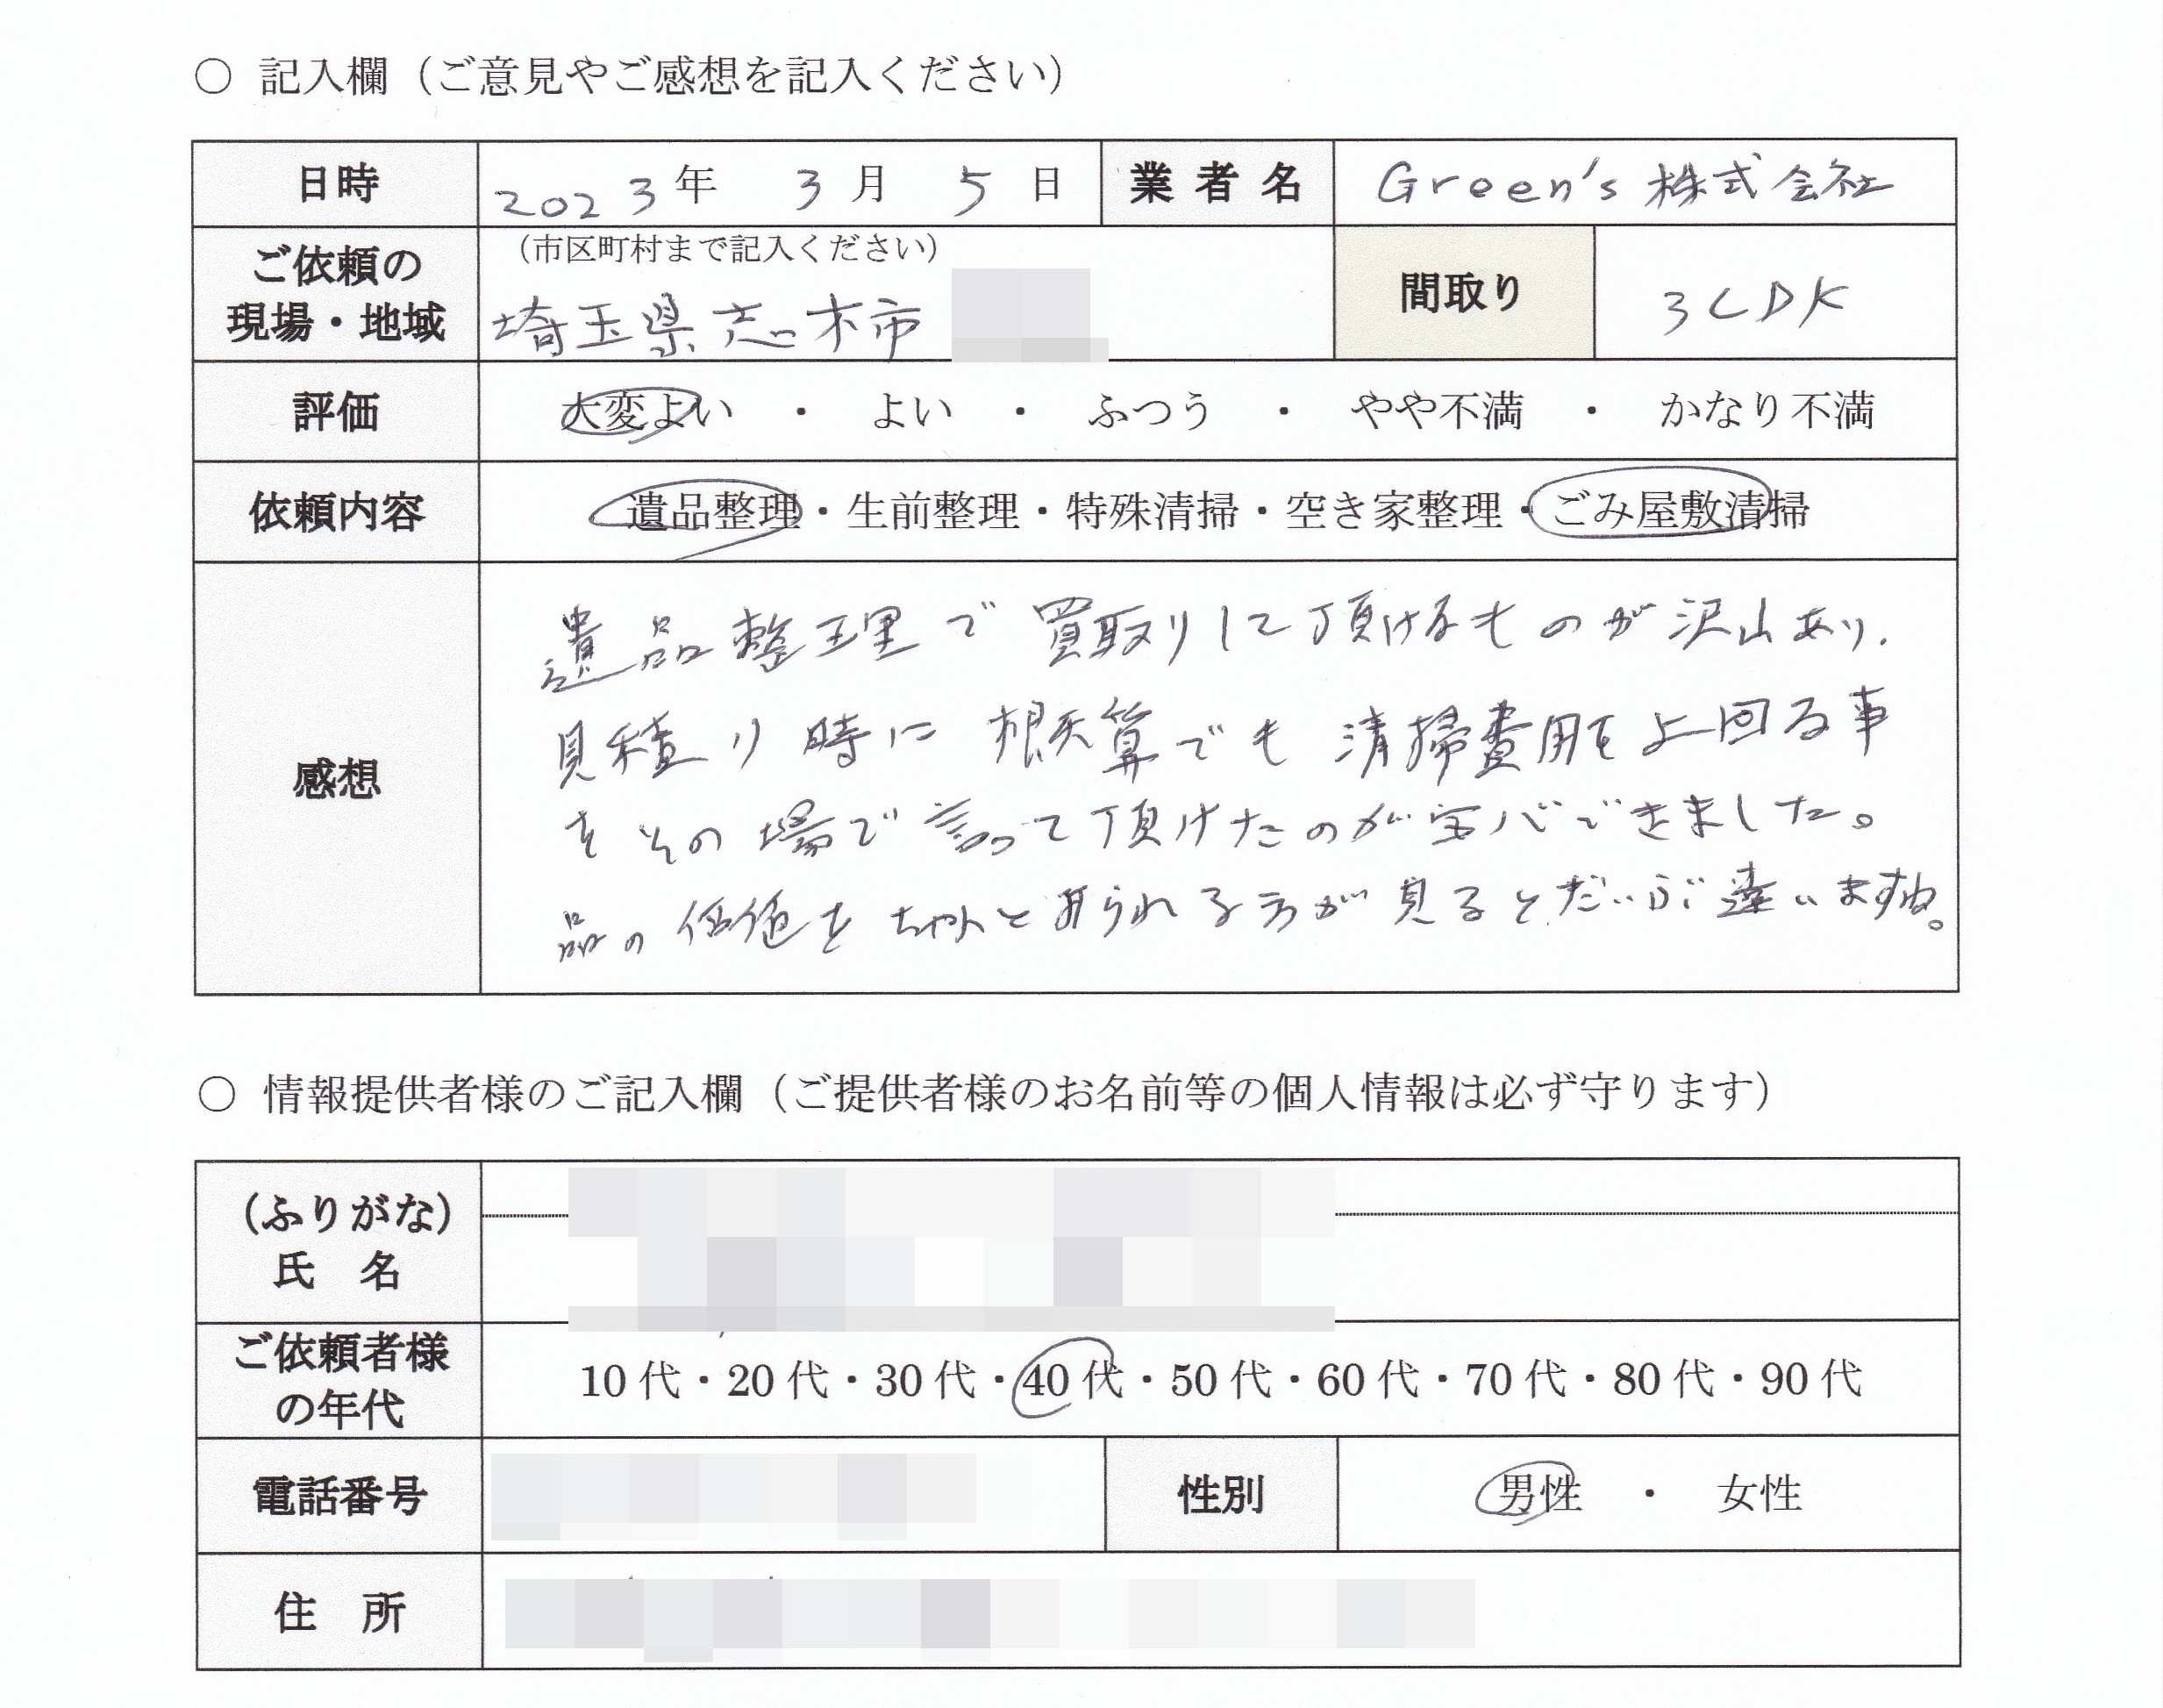 ○ 記入欄（ご意見やご感想を記入ください）
日時 2023年 3月 5日 業者名 Green's 株式会社
ご依頼の現場・地域 （市区町村まで記入ください）
埼玉県志木市 間取り 3LDK
評価 大変よい ・ よい ・ ふつう ・ やや不満 ・ かなり不満
依頼内容 遺品整理・生前整理・特殊清掃・空き家整理・ごみ屋敷清掃
感想
遺品整理で買取りして頂けるものが沢山あり、
見積り時に概算でも清掃費用を上回る事
をその場で言って頂けたのが安心できました。
品の価値をちゃんと見られる方が見るとだいぶ違いますね。
○ 情報提供者様のご記入欄（ご提供者様のお名前等の個人情報は必ず守ります）
（ふりがな）
氏 名
ご依頼者様の年代 10代・20代・30代・40代・50代・60代・70代・80代・90代
電話番号 性別 男性 ・ 女性
住 所